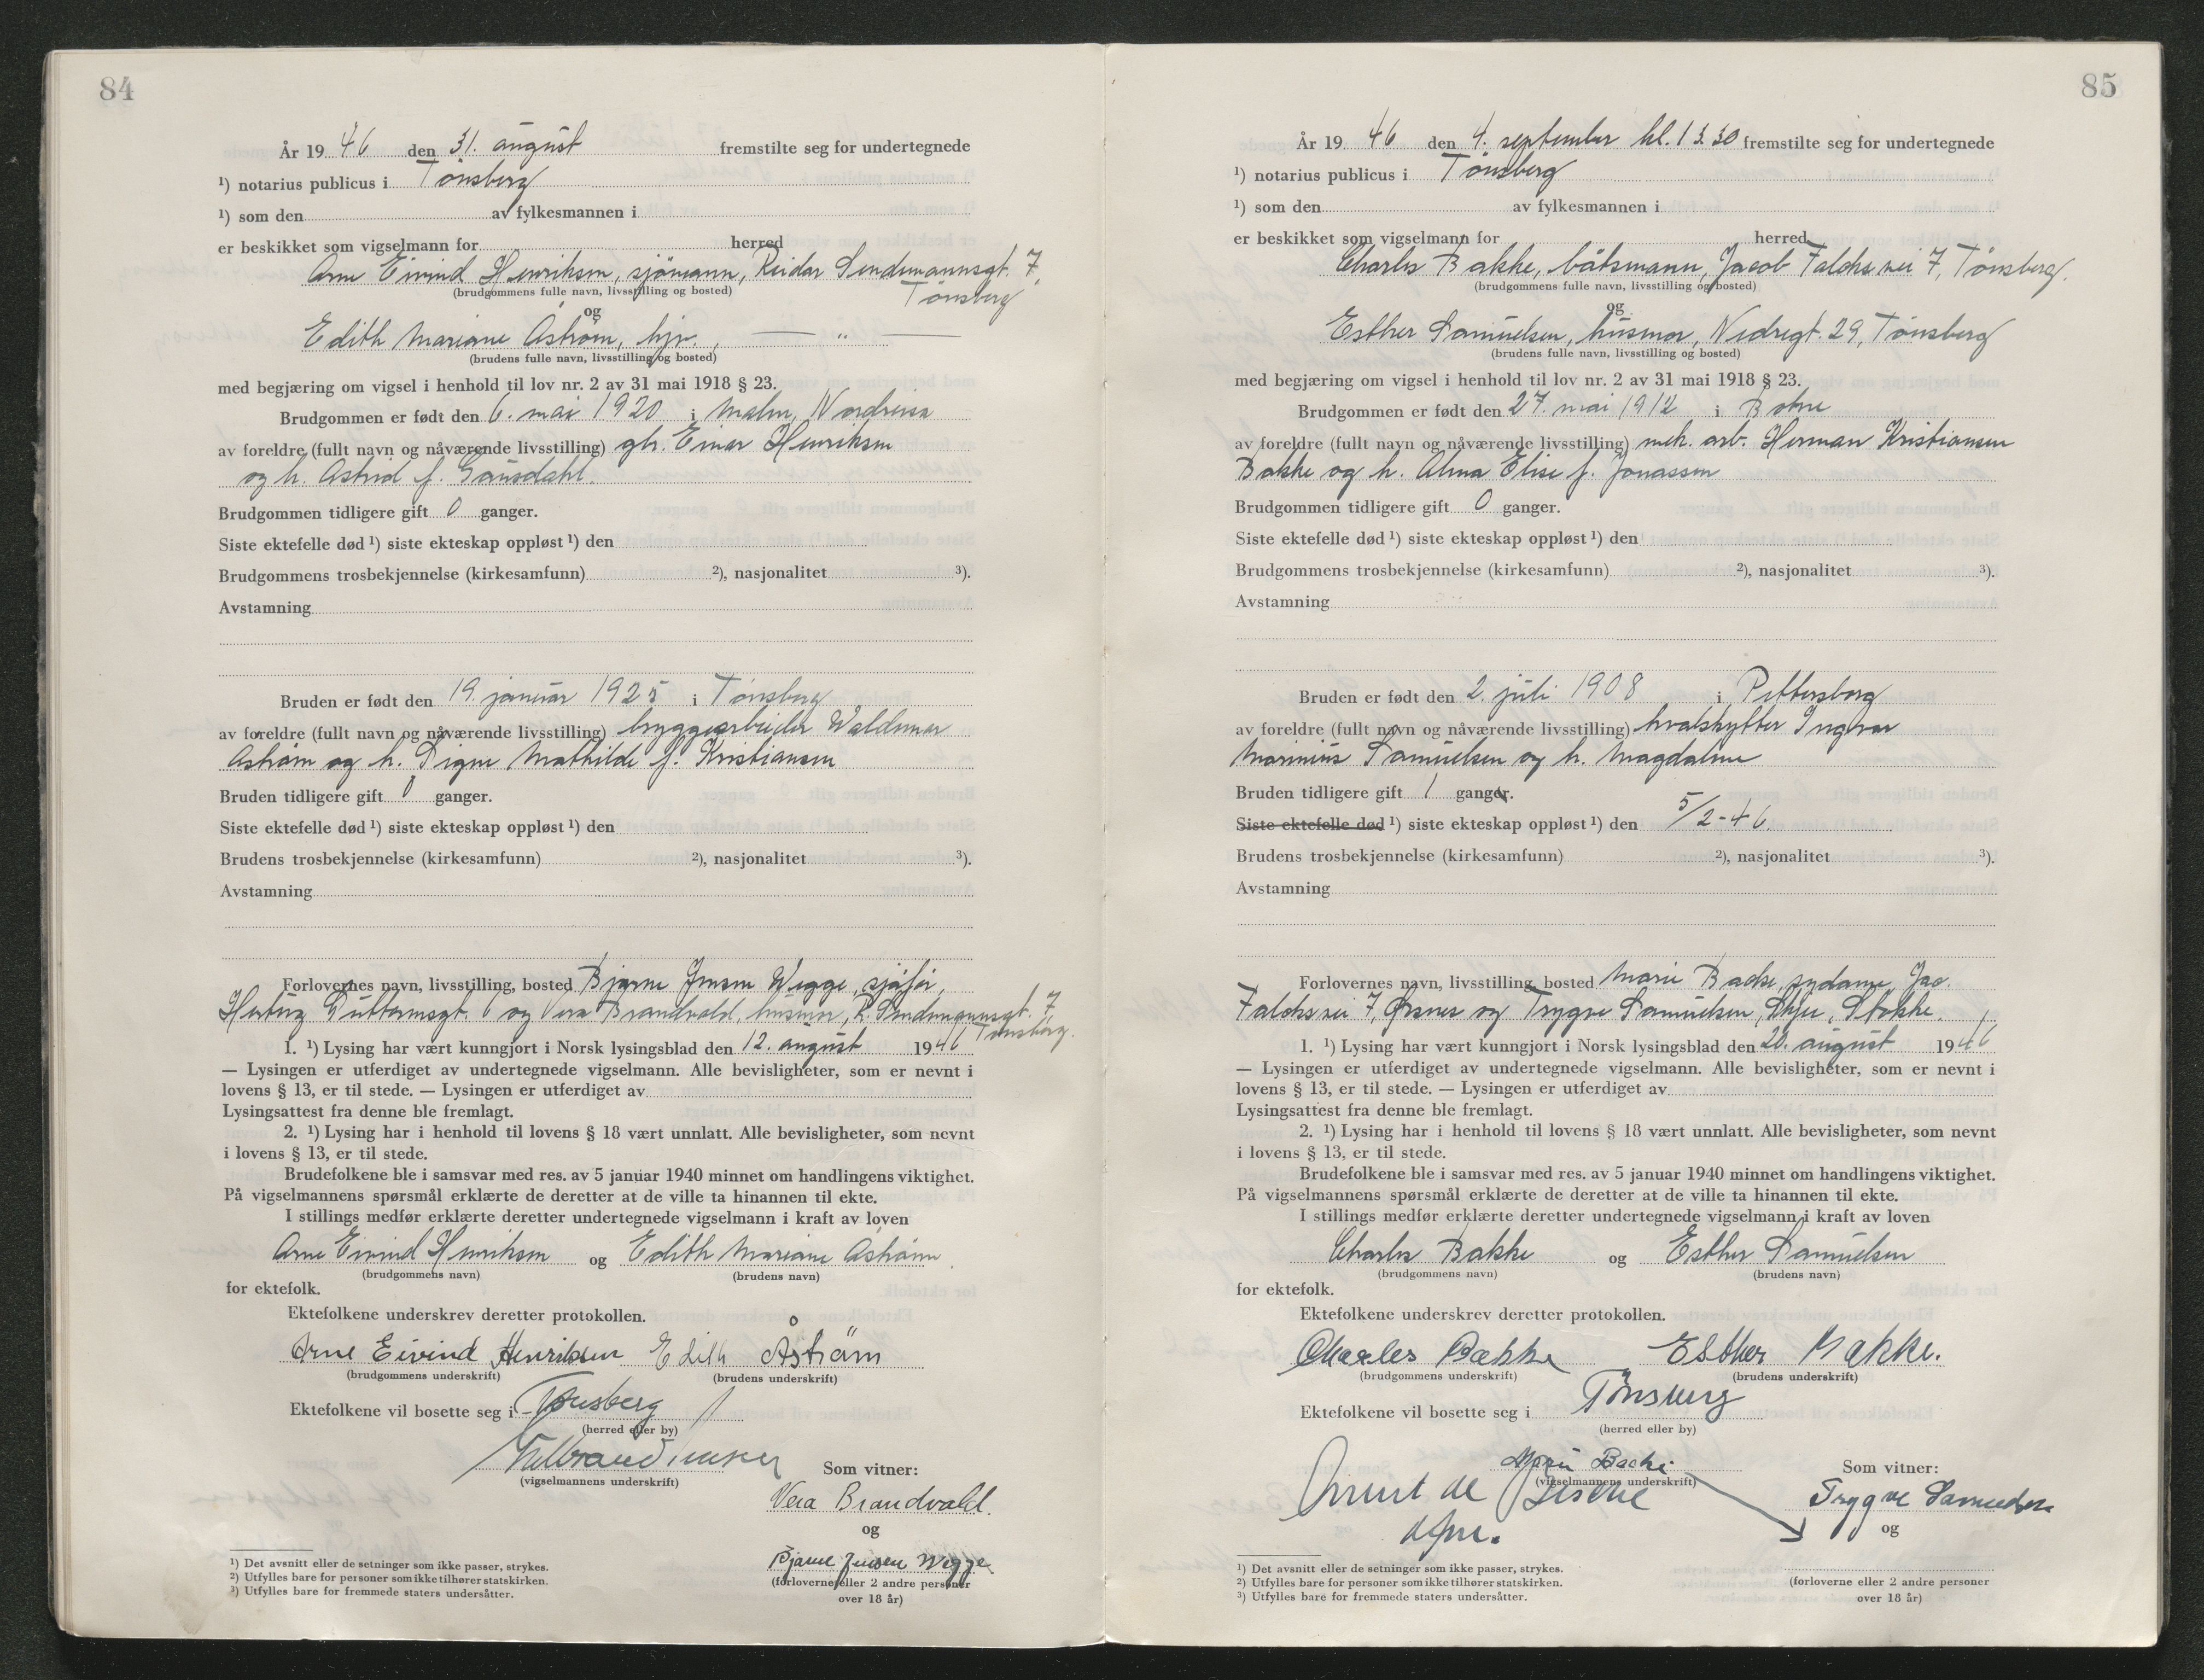 84
År 19 46 den 31. august fremstilte seg for undertegnede
¹) notarius publicus i Tönsberg
¹) som den av fylkesmannen i
er beskikket som vigselmann for herred
Arne Eivind Henriksen, sjömann, Reidar Sendemannsgt. 7,
Tönsberg
(brudgommens fulle navn, livsstilling og bosted)
og
Edith Mariane Åström, hjv., — " —
(brudens fulle navn, livsstilling og bosted)
med begjæring om vigsel i henhold til lov nr. 2 av 31 mai 1918 § 23.
Brudgommen er født den 6. mai 1920 i Malm, Nordreisa
av foreldre (fullt navn og nåværende livsstilling) gbr. Einar Henriksen
og h. Astrid f. Gausdahl.
Brudgommen tidligere gift 0 ganger.
Siste ektefelle død ¹) siste ekteskap oppløst ¹) den
Brudgommens trosbekjennelse (kirkesamfunn) ²), nasjonalitet ³).
Avstamning
Bruden er født den 19. januar 1925 i Tönsberg
av foreldre (fullt navn og nåværende livsstilling) bryggearbeider Waldemar
Åström og h. Signe Mathilde f. Kristiansen
Bruden tidligere gift 0 ganger.
Siste ektefelle død ¹) siste ekteskap oppløst ¹) den
Brudens trosbekjennelse (kirkesamfunn) ²), nasjonalitet ³).
Avstamning
Forlovernes navn, livsstilling, bosted Bjarne Jensen Wegge, sjåfør,
Hertug Guttormsgt. 6 og Vera Brandvold, husmor, R. Sendemannsgt. 7
Tönsberg.
1. ¹) Lysing har vært kunngjort i Norsk lysingsblad den 12. august 1946
— Lysingen er utferdiget av undertegnede vigselmann. Alle bevisligheter, som er nevnt i
lovens § 13, er til stede. — Lysingen er utferdiget av
Lysingsattest fra denne ble fremlagt.
2. ¹) Lysing har i henhold til lovens § 18 vært unnlatt. Alle bevisligheter, som nevnt
i lovens § 13, er til stede.
Brudefolkene ble i samsvar med res. av 5 januar 1940 minnet om handlingens viktighet.
På vigselmannens spørsmål erklærte de deretter at de ville ta hinannen til ekte.
I stillings medfør erklærte deretter undertegnede vigselmann i kraft av loven
Arne Eivind Henriksen og Edith Mariane Åström
(brudgommens navn) (brudens navn)
for ektefolk.
Ektefolkene underskrev deretter protokollen.
Arne Eivind Henriksen Edith Åström
(brudgommens underskrift) (brudens underskrift)
Ektefolkene vil bosette seg i Tønsberg
(herred eller by)
(vigselmannens underskrift) Som vitner:
Vera Brandvold.
og
Bjarne Jensen Wegge
(forloverne eller 2 andre personer
over 18 år)
¹) Det avsnitt eller de setninger som ikke passer, strykes.
²) Utfylles bare for personer som ikke tilhører statskirken.
³) Utfylles bare for fremmede staters undersåtter.
85
År 19 46 den 4. september kl. 13.30 fremstilte seg for undertegnede
¹) notarius publicus i Tönsberg
¹) som den av fylkesmannen i
er beskikket som vigselmann for herred
Charles Bakke, båtsmann, Jacob Falcks vei 7, Tönsberg.
(brudgommens fulle navn, livsstilling og bosted)
og
Esther Samuelsen, husmor, Nedregt. 29, Tönsberg
(brudens fulle navn, livsstilling og bosted)
med begjæring om vigsel i henhold til lov nr. 2 av 31 mai 1918 § 23.
Brudgommen er født den 27. mai 1912 i Botne
av foreldre (fullt navn og nåværende livsstilling) mek. arb. Herman Kristiansen
Bakke og h. Alma Elise f. Jonassen
Brudgommen tidligere gift 0 ganger.
Siste ektefelle død ¹) siste ekteskap oppløst ¹) den
Brudgommens trosbekjennelse (kirkesamfunn) ²), nasjonalitet ³).
Avstamning
Bruden er født den 2. juli 1908 i Pettersborg
av foreldre (fullt navn og nåværende livsstilling) hvalskytter Ingvar
Marinius Samuelsen og h. Magdalene
Bruden tidligere gift 1 ganger.
Siste ektefelle død ¹) siste ekteskap oppløst ¹) den 5/2-46.
Brudens trosbekjennelse (kirkesamfunn) ²), nasjonalitet ³).
Avstamning
Forlovernes navn, livsstilling, bosted Marie Backe, sydame, Jac.
Falcks vei 7, Ørsnes og Trygve Samuelsen, Skjee, Stokke.
1. ¹) Lysing har vært kunngjort i Norsk lysingsblad den 20. august 1946
— Lysingen er utferdiget av undertegnede vigselmann. Alle bevisligheter, som er nevnt i
lovens § 13, er til stede. — Lysingen er utferdiget av
Lysingsattest fra denne ble fremlagt.
2. ¹) Lysing har i henhold til lovens § 18 vært unnlatt. Alle bevisligheter, som nevnt
i lovens § 13, er til stede.
Brudefolkene ble i samsvar med res. av 5 januar 1940 minnet om handlingens viktighet.
På vigselmannens spørsmål erklærte de deretter at de ville ta hinannen til ekte.
I stillings medfør erklærte deretter undertegnede vigselmann i kraft av loven
Charles Bakke og Esther Samuelsen
(brudgommens navn) (brudens navn)
for ektefolk.
Ektefolkene underskrev deretter protokollen.
Charles Bakke Esther Bakke.
(brudgommens underskrift) (brudens underskrift)
Ektefolkene vil bosette seg i Tönsberg
(herred eller by)
Marie Backe
(vigselmannens underskrift) Som vitner:
Trygve Samuelsen
og
(forloverne eller 2 andre personer
over 18 år)
¹) Det avsnitt eller de setninger som ikke passer, strykes.
²) Utfylles bare for personer som ikke tilhører statskirken.
³) Utfylles bare for fremmede staters undersåtter.